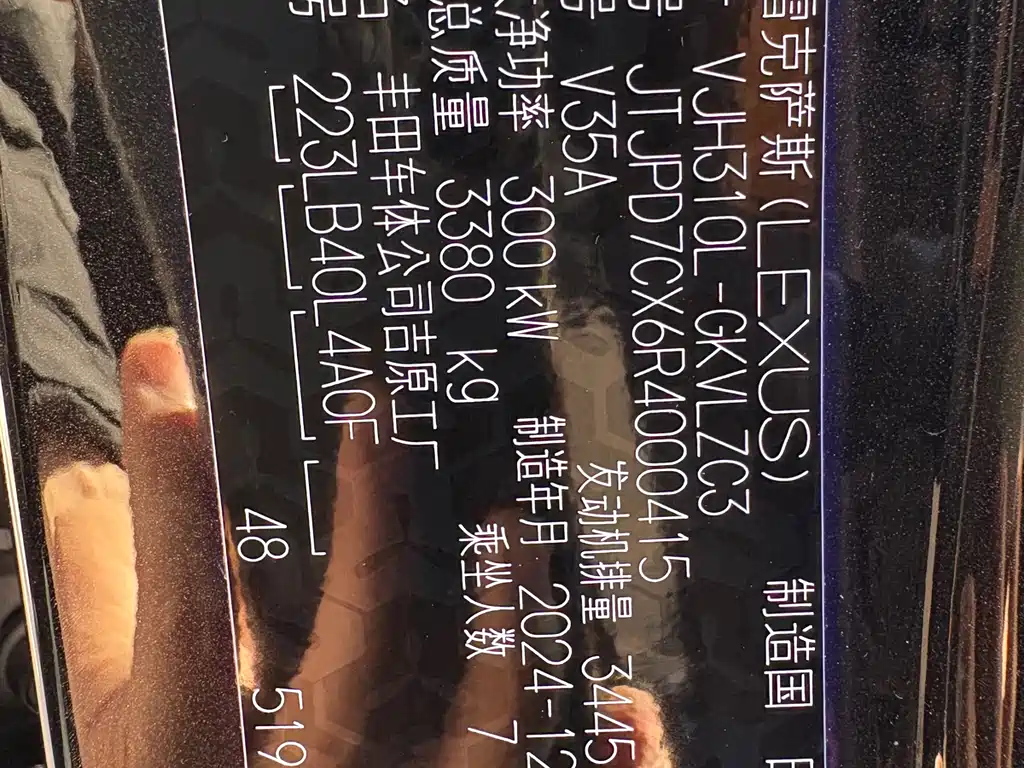 雷克萨斯(LEXUS) 制造国
VJH310L-GKVLZC3
号 JTJPD7CX6R4000415
号 V35A 发动机排量 3445
净功率 300kW 制造年月 2024-12
总质量 3380 kg 乘坐人数 7
丰田车体公司吉原工厂
号 223LB40L4A0F
48 519